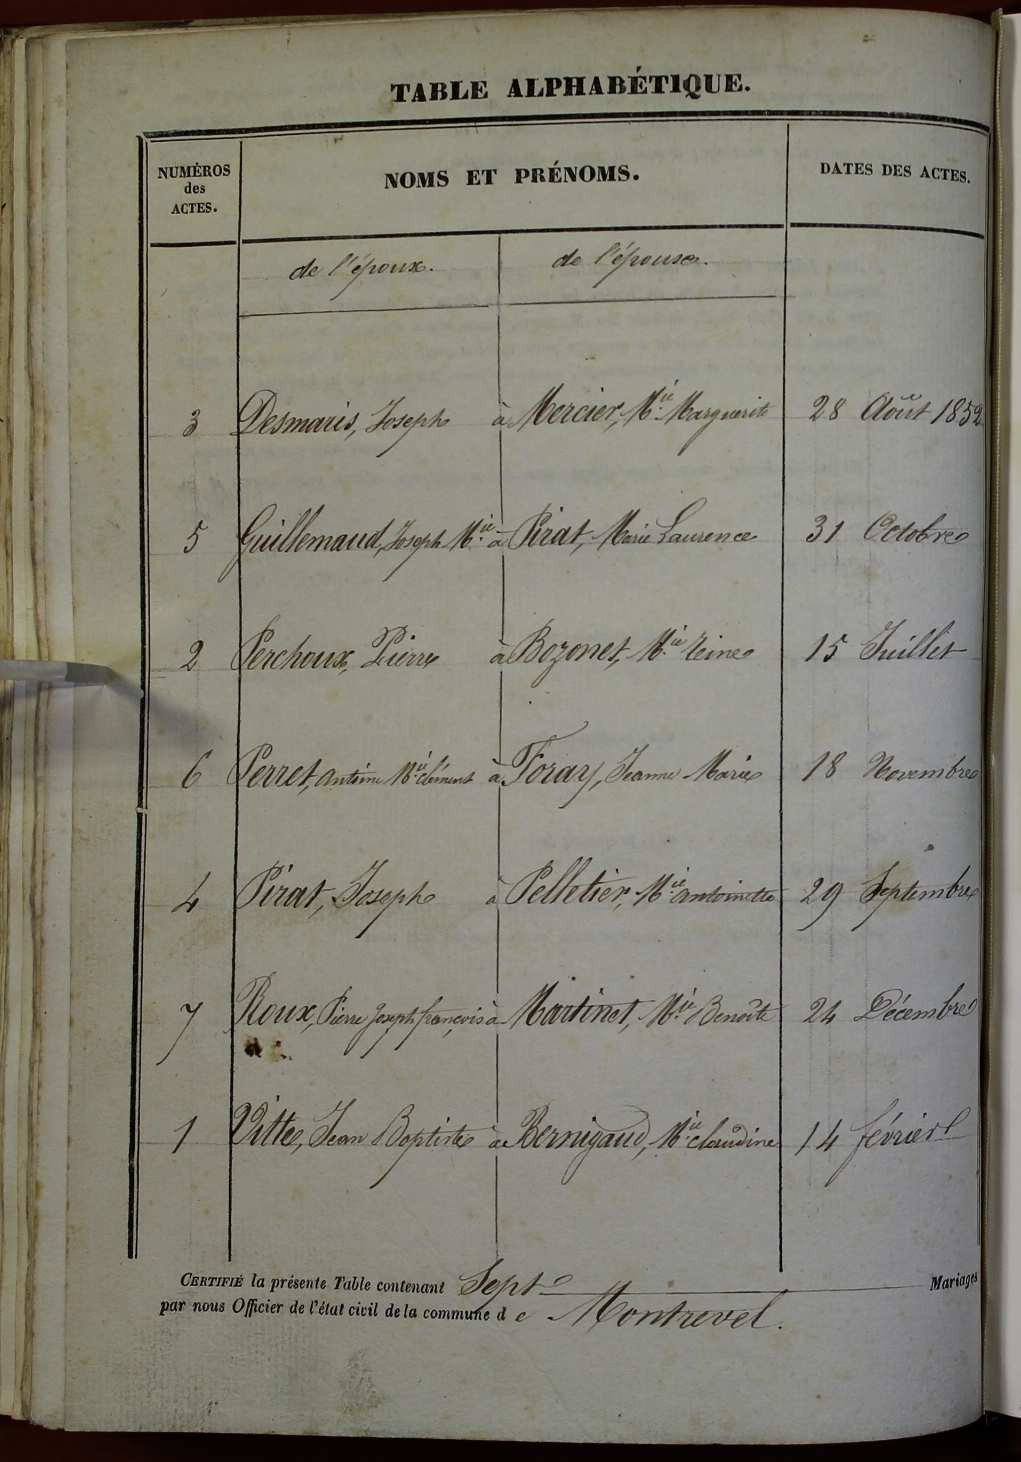 TABLE ALPHABÉTIQUE.
NUMÉROS des ACTES. NOMS ET PRÉNOMS. DATES DES ACTES.
de l'époux. de l'épouse.
3 Desmaris, Joseph à Mercier, M.ie Marguerite 28 Août 1852
5 Guillemaud, Joseph M.ie à Pirat, Marie Laurence 31 Octobre
2 Perchoux, Pierre à Bozonet, M.ie Reine 15 Juillet
6 Perret, Antoine M.ie Clément à Foray, Jeanne Marie 18 Novembre
4 Pirat, Joseph à Pelletier, M.ie Antoinette 29 Septembre
7 Roux, Pierre Joseph françois à Martinet, M.ie Benoîte 24 Décembre
1 Vitte, Jean Baptiste à Bernigaud, M.ie Claudine 14 février
CERTIFIÉ la présente Table contenant Sept Mariages
par nous Officier de l'état civil de la commune d e Montrevel.